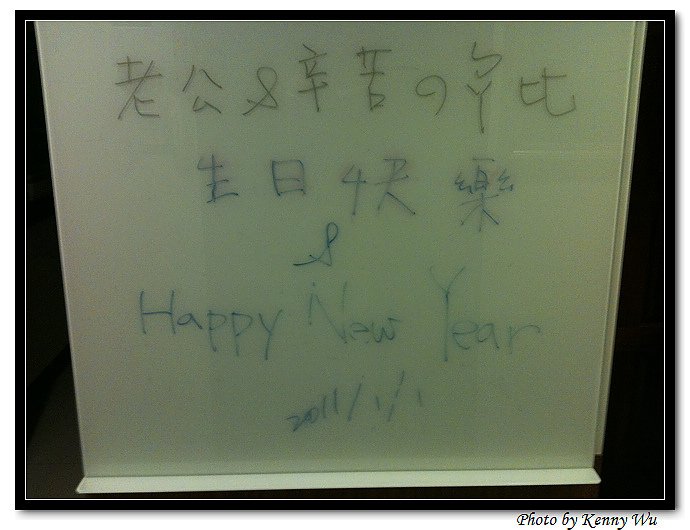 老公&辛苦の爹比
生日快樂
&
Happy New Year
2011/1/1
Photo by Kenny Wu